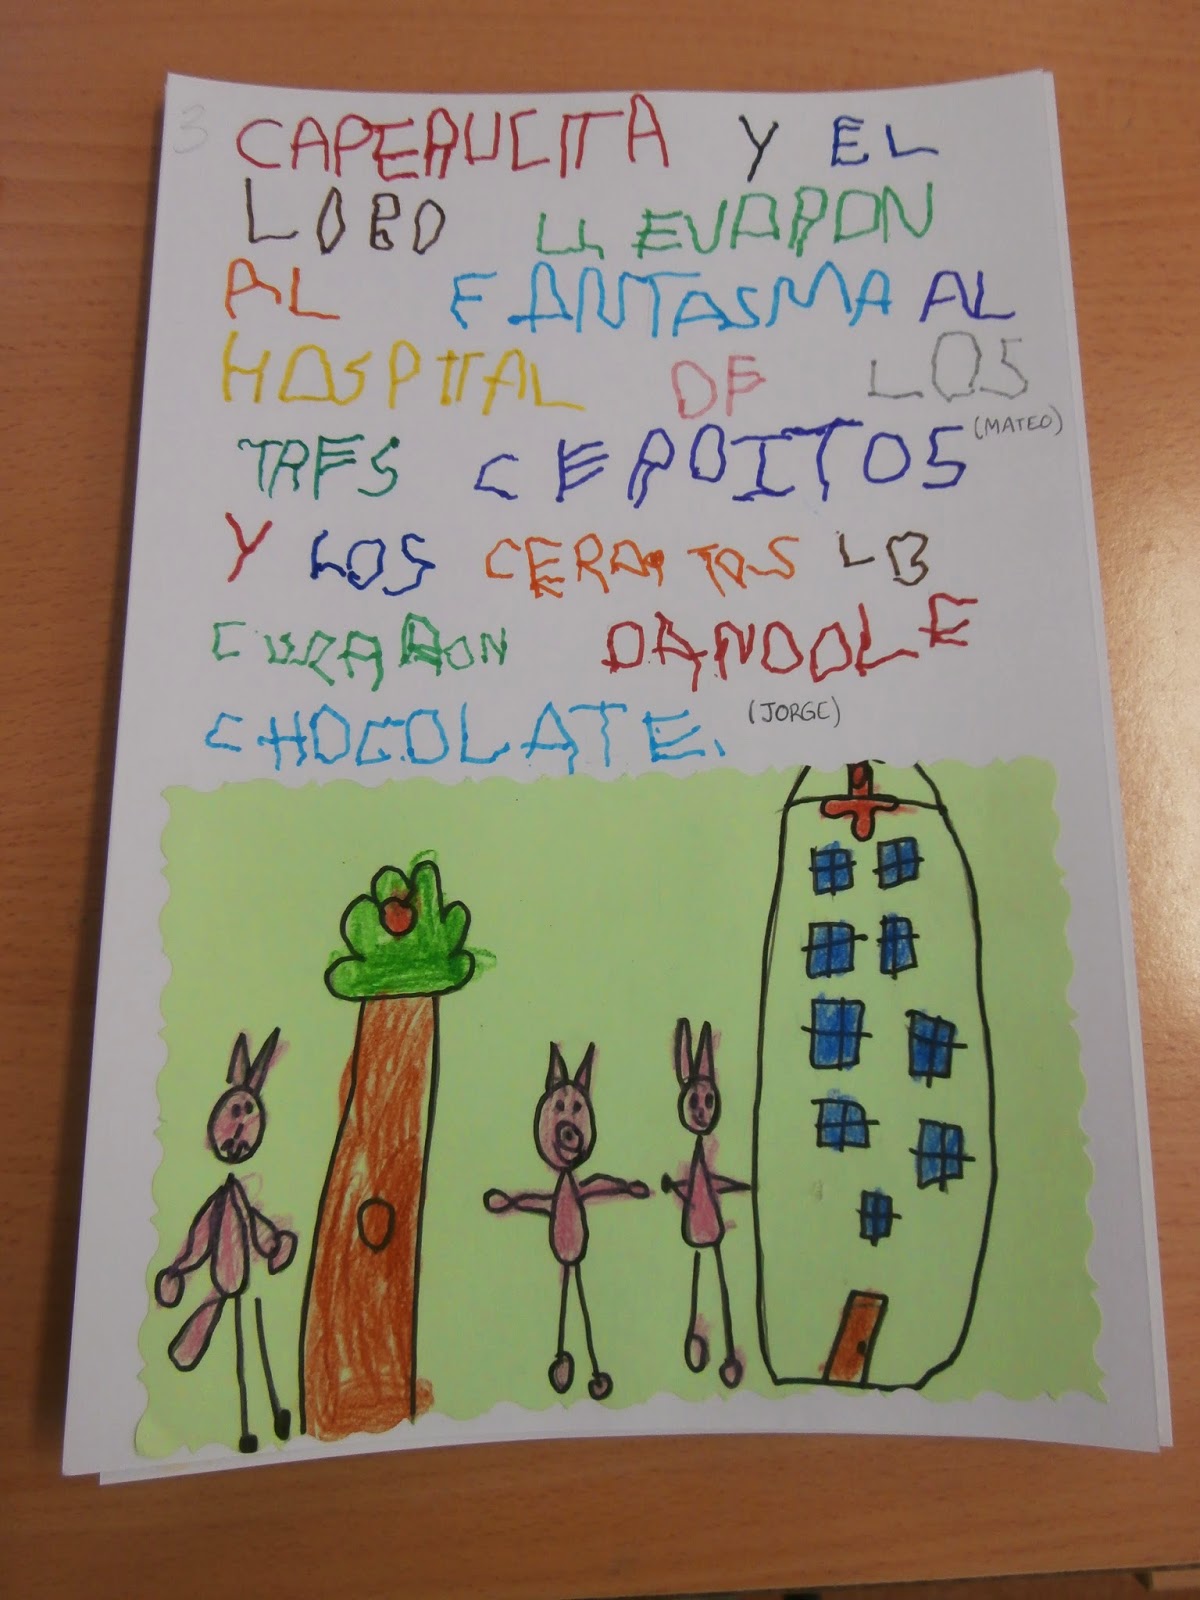 3
CAPERUCITA Y EL
LOBO LLEVARON
AL FANTASMA AL
HOSPITAL DE LOS
(MATEO)
TRES CERDITOS
Y LOS CERDITOS LO
CURARON DANDOLE
CHOCOLATE.
(JORGE)